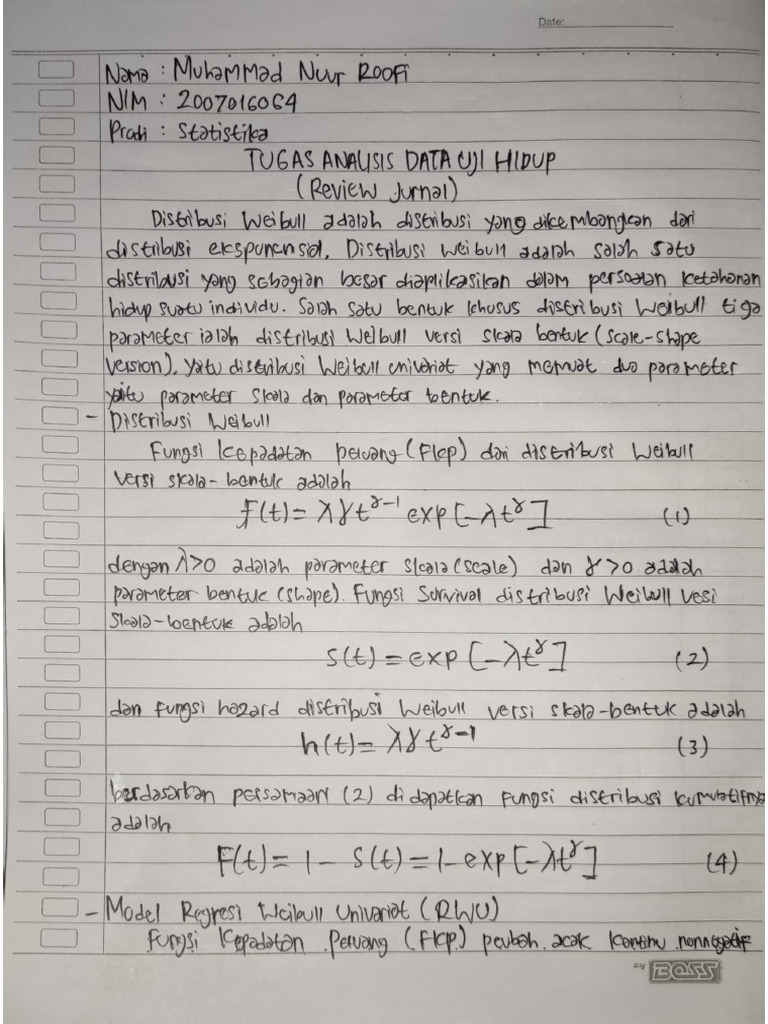 Date:
Nama : Muhammad Nuur Roofi
NIM : 2007016064
Prodi : Statistika
TUGAS ANALISIS DATA UJI HIDUP
(Review Jurnal)
Distribusi Weibull adalah distribusi yang dikembangkan dari
distribusi eksponensial. Distribusi Weibull adalah salah satu
distribusi yang sebagian besar diaplikasikan dalam persoalan ketahanan
hidup suatu individu. Salah satu bentuk khusus distribusi Weibull tiga
parameter ialah distribusi Weibull versi skala bentuk (scale-shape
version), yaitu distribusi Weibull univariat yang memuat dua parameter
yaitu parameter skala dan parameter bentuk.
- Distribusi Weibull
Fungsi kepadatan peluang (FKP) dari distribusi Weibull
versi skala-bentuk adalah
f(t) = λγt^γ-1 exp[-λt^γ] (1)
dengan λ>0 adalah parameter skala (scale) dan γ>0 adalah
parameter bentuk (shape). Fungsi Survival distribusi Weibull vesi
skala-bentuk adalah
S(t) = exp[-λt^γ] (2)
dan fungsi hazard distribusi Weibull versi skala-bentuk adalah
h(t) = λγt^γ-1 (3)
berdasarkan persamaan (2) didapatkan fungsi distribusi kumulatifnya
adalah
F(t) = 1 - S(t) = 1 - exp[-λt^γ] (4)
- Model Regresi Weibull Univariat (RWU)
Fungsi Kepadatan Peluang (FKP) peubah acak kontinu nonnegatif
BOSS